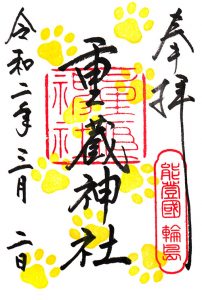 奉拝
能登國 輪島
重蔵神社
重蔵神社
令和二年三月二日